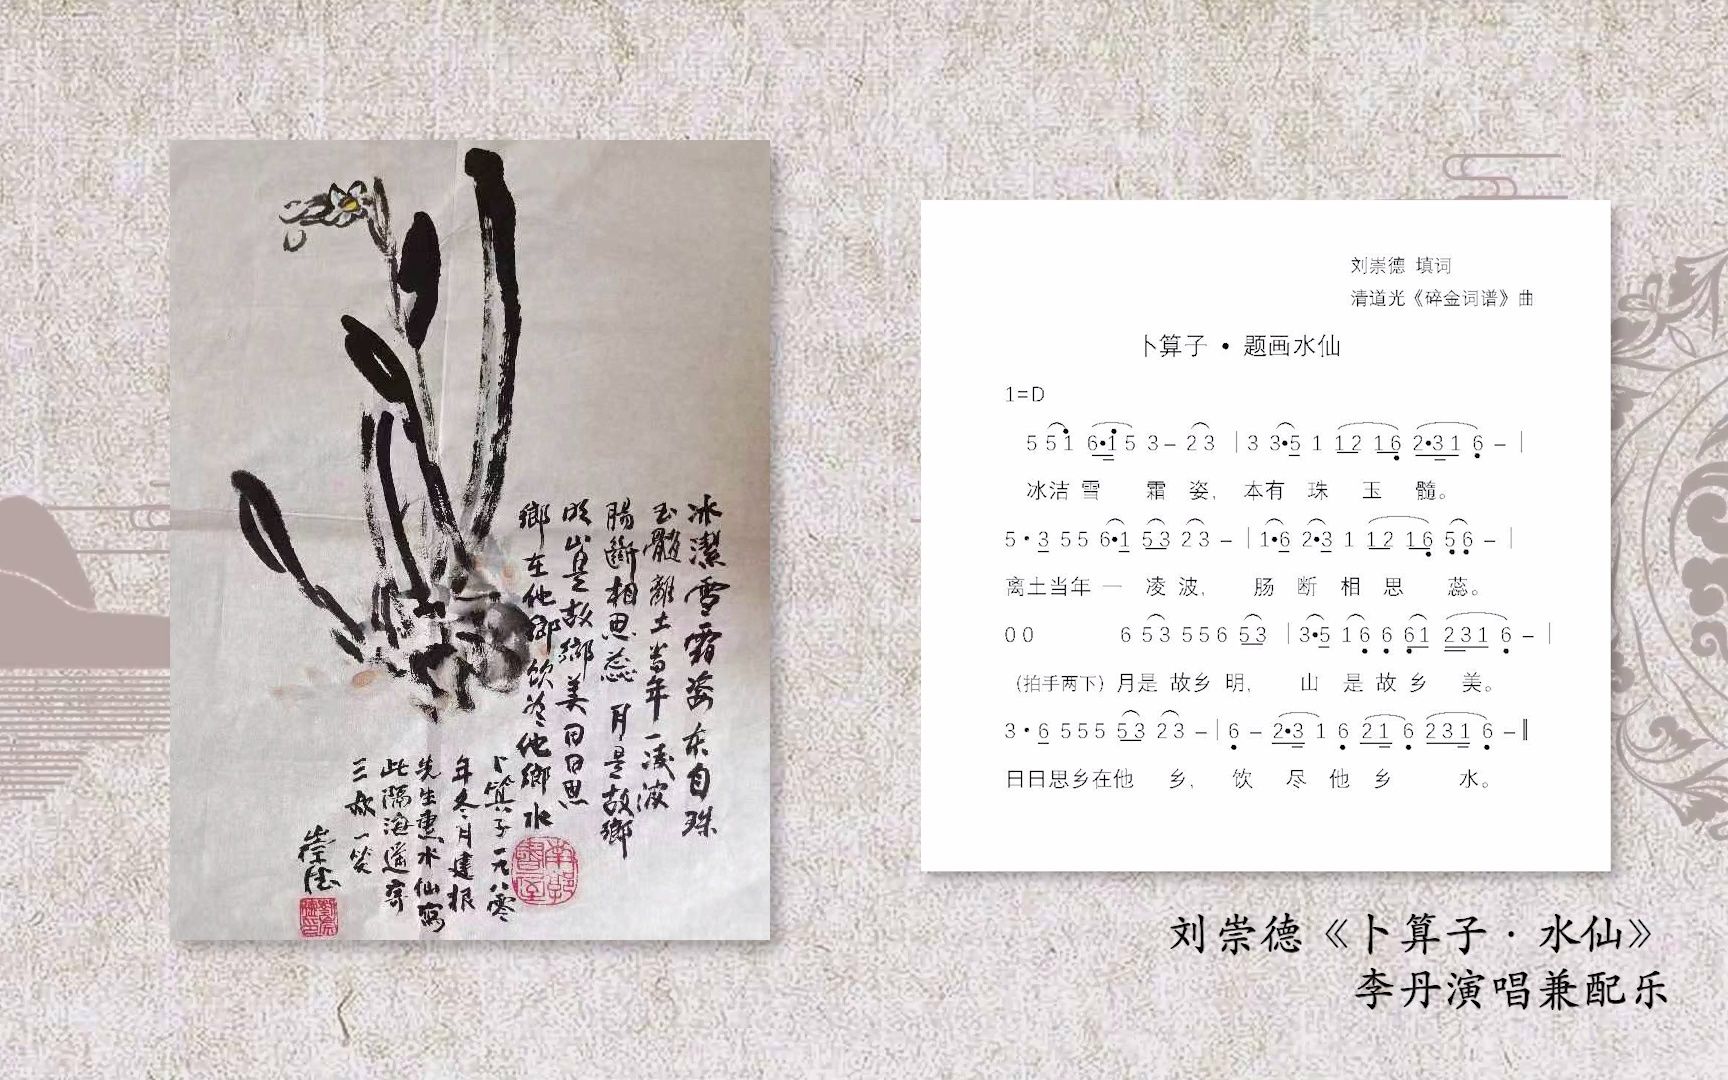 冰潔雪霜姿本有珠
玉髓離土當年一凌波
腸斷相思蕊月是故鄉
明山是故鄉美日日思
鄉在他鄉飲盡他鄉水
卜算子一九八零
年冬月建根
先生惠水仙寫
此隔海遥寄
三叔一笑
崇德
刘崇德 填词
清道光《碎金词谱》曲
卜算子·题画水仙
1=D
5 5 1 6·1 5 3 – 2 3 | 3 3·5 1 1 2 1 6 2·3 1 6 – |
冰洁 雪 霜 姿， 本有 珠 玉 髓。
5·3 5 5 6·1 5 3 2 3 – | 1·6 2·3 1 1 2 1 6 5 6 – |
离土当年 一 凌 波， 肠 断 相 思 蕊。
0 0 6 5 3 5 5 6 5 3 | 3·5 1 6 6 6 1 2 3 1 6 – |
（拍手两下）月是 故乡 明， 山 是 故 乡 美。
3·6 5 5 5 5 3 2 3 – | 6 – 2·3 1 6 2 1 6 2 3 1 6 – ‖
日日思乡在他 乡， 饮 尽 他 乡 水。
刘崇德《卜算子·水仙》
李丹演唱兼配乐